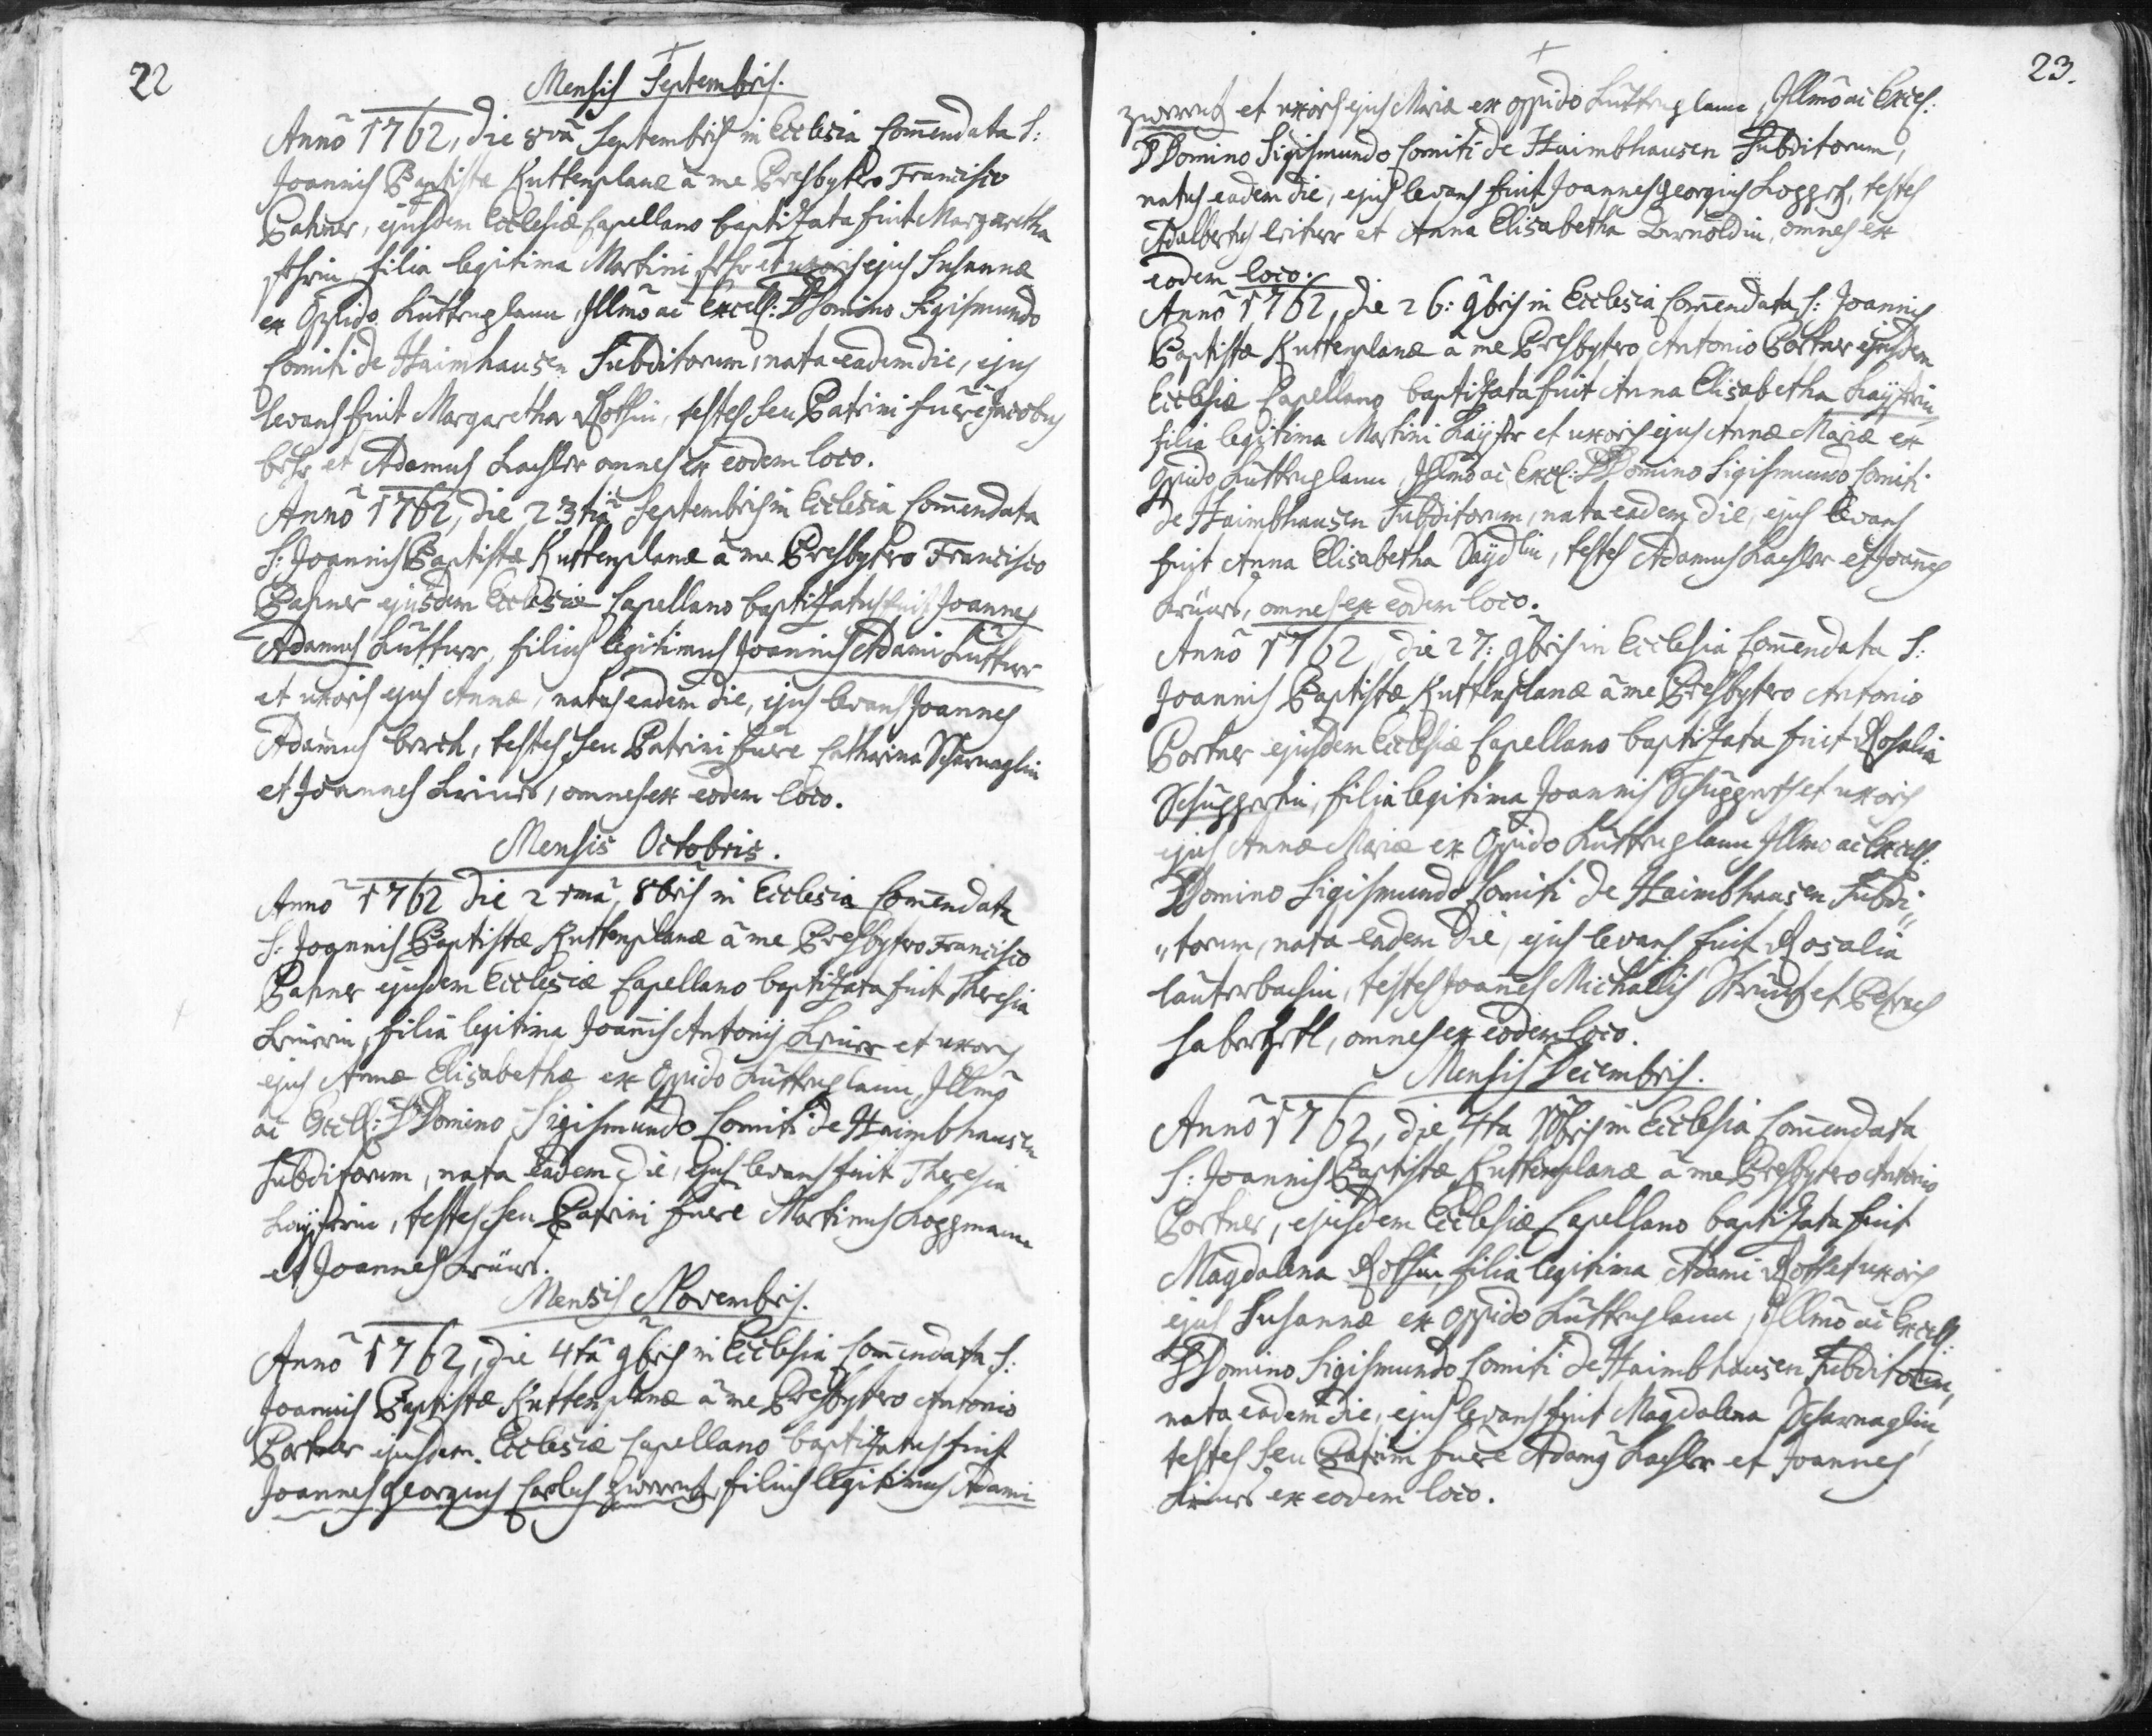 22
Mensis Septembris.
Anno 1762, die 8va Septembris in Ecclesia Commendata S:
Joannis Baptistæ Kuttenplanæ à me Presbytero Francisco
ejusdem Ecclesiæ Capellano baptizata fuit Margaretha
filia legitima Martini et uxoris ejus Susannæ
ex Oppido Kuttenplann, Illmo ac Excell: DDomino Sigismundo
Comiti de Haimhausen Subditorum, nata eadem die, ejus
levans fuit Margaretha Rothin, testes seu Patrini fuere Jacobus
et Adamus omnes ex eodem loco.
Anno 1762, die 23tia Septembris in Ecclesia Commendata
S: Joannis Baptistæ Kuttenplanæ à me Presbytero Francisco
ejusdem Ecclesiæ Capellano baptizatus fuit Joannes
Adamus filius legitimus Joannis Adami
et uxoris ejus Annæ, natus eadem die, ejus levans Joannes
Adamus testes seu Patrini fuere Catharina Scharnaglin
et Joannes omnes ex eodem loco.
Mensis Octobris.
Anno 1762 die 21ma 8bris in Ecclesia Commendata
S: Joannis Baptistæ Kuttenplanæ à me Presbytero Francisco
ejusdem Ecclesiæ Capellano baptizata fuit Theresia
filia legitima Joannis Antonij et uxoris
ejus Annæ Elisabethæ ex Oppido Kuttenplann, Illmo
ac Excell: DDomino Sigismundo Comiti de Haimbhausen
Subditorum, nata eadem die, ejus levans fuit Theresia
testes seu Patrini fuere Martinus Koppmann
et Joannes
Mensis Novembris.
Anno 1762, die 4ta 9bris in Ecclesia Commendata S:
Joannis Baptistæ Kuttenplanæ à me Presbytero Antonio
Portner ejusdem Ecclesiæ Capellano baptizatus fuit
Joannes Georgius Carolus filius legitimus Adami
23.
et uxoris ejus Mariæ ex oppido Kuttenplann, Illmo ac Excel:
DDomino Sigismundo Comiti de Haimbhausen Subditorum,
natus eadem die, ejus levans fuit Joannes Georgius testes
Adalbertus et Anna Elisabetha omnes ex
eodem loco.
Anno 1762, die 26: 9bris in Ecclesia Commendata S: Joannis
Baptistæ Kuttenplanæ à me Presbytero Antonio Portner ejusdem
Ecclesiæ Capellano baptizata fuit Anna Elisabetha
filia legitima Martini et uxoris ejus Annæ Mariæ ex
Oppido Kuttenplann, Illmo ac Excel: DDomino Sigismundo Comiti
de Haimbhausen Subditorum, nata eadem die, ejus levans
fuit Anna Elisabetha Saydlin, testes Adamus et Joannes
omnes ex eodem loco.
Anno 1762, die 27: 9bris in Ecclesia Commendata S:
Joannis Baptistæ Kuttenplanæ à me Presbytero Antonio
Portner ejusdem Ecclesiæ Capellano baptizata fuit Rosalia
filia legitima Joannis et uxoris
ejus Annæ Mariæ ex Oppido Kuttenplann Illmo ac Excell:
DDomino Sigismundo Comiti de Haimbhausen Subdi„
„torum, nata eadem die, ejus levans fuit Rosalia
Lauterbachin, testes Joannes Michaelis et Petrus
omnes ex eodem loco.
Mensis Decembris.
Anno 1762, die 4ta Xbris in Ecclesia Commendata
S: Joannis Baptistæ Kuttenplanæ à me Presbytero Antonio
Portner, ejusdem Ecclesiæ Capellano baptizata fuit
Magdalena Rothin, filia legitima Adami Roth et uxoris
ejus Susannæ ex oppido Kuttenplann, Illmo ac Excell:
DDomino Sigismundo Comiti de Haimbhausen Subditorum,
nata eadem die, ejus levans fuit Magdalena Scharnaglin
testes seu Patrini fuere Adamus et Joannes
ex eodem loco.